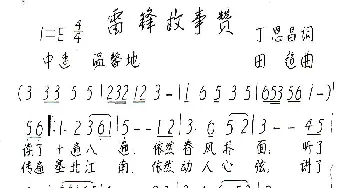 雷锋故事赞
1=E 4/4
丁恩昌词
中速 温馨地
田 曲
(3 33 5 5 | 232 12 3 - | 1 6 5 3 5 | 6535 6 1 -)
56 ‖: 1· 2 361 | 5 - - 12 | 3· 6 52 | 3 - - 45
读了十遍八遍, 依然春风扑面, 听了
传遍塞北江南, 依然动人心弦, 讲了